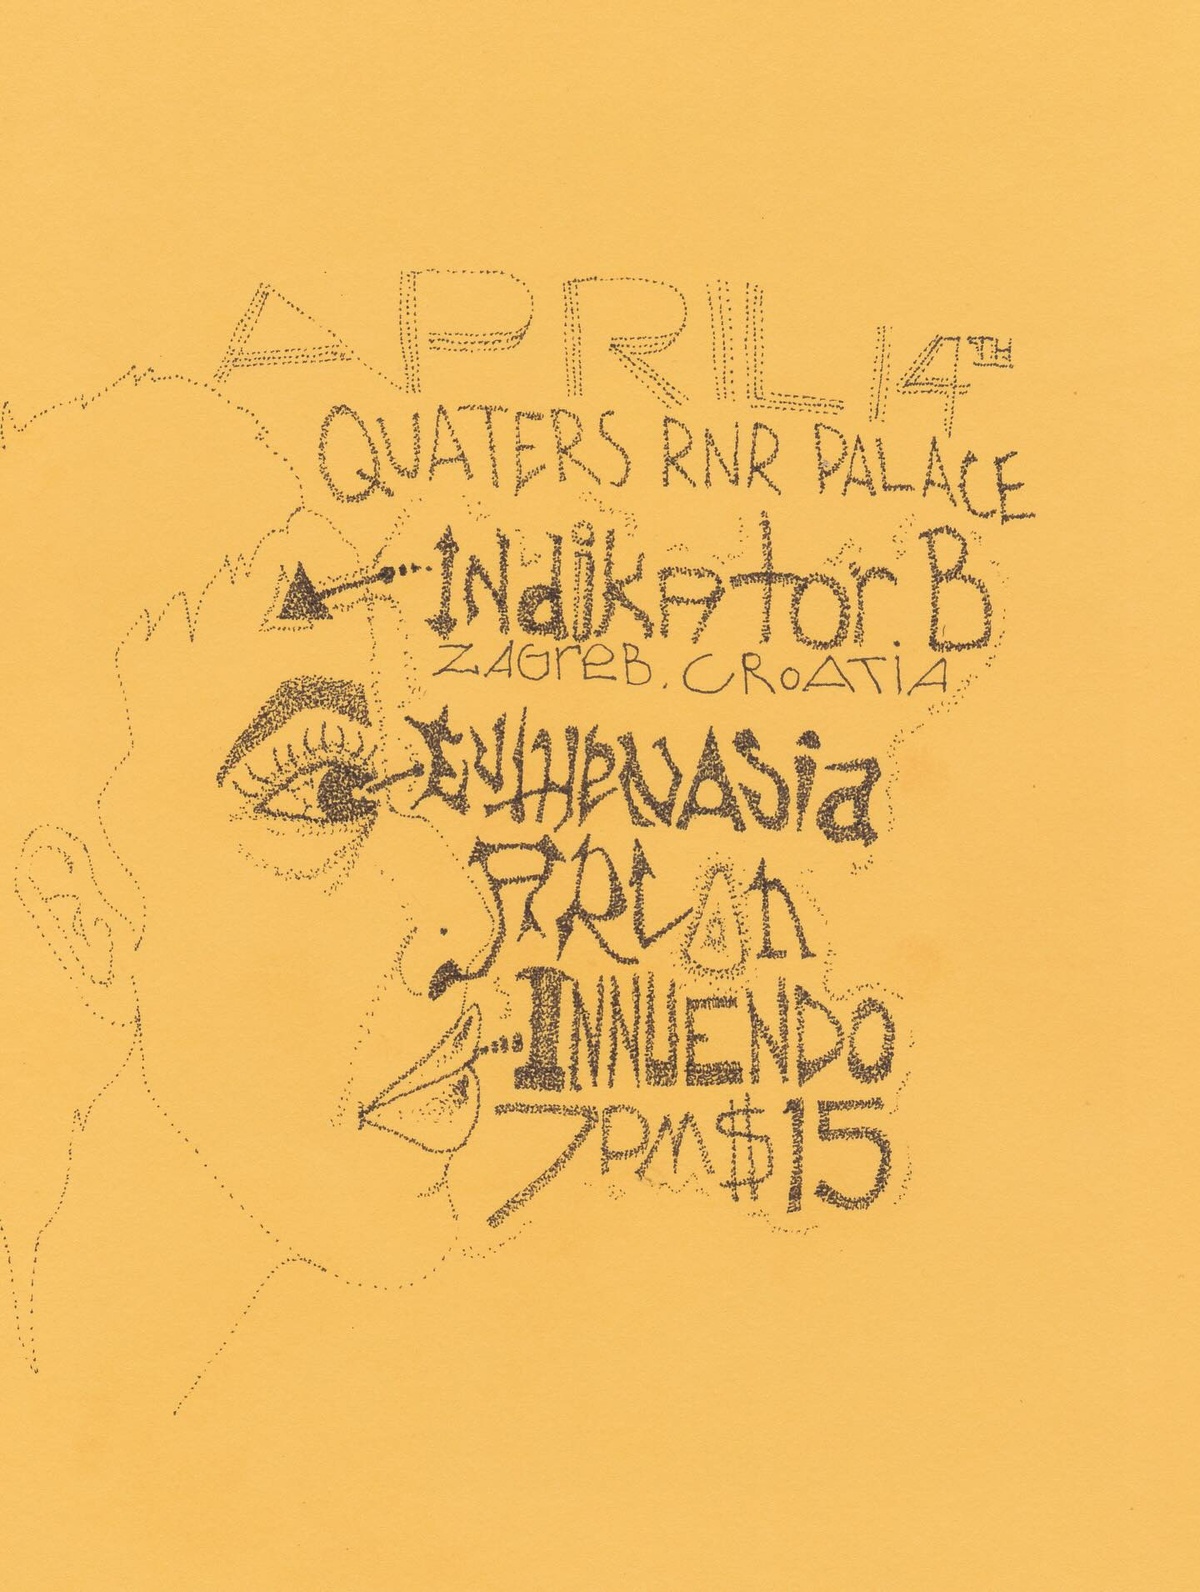 APRIL 14TH
QUATERS RNR PALACE
INdikAtor. B
ZAGreB. CROATIA
EUTHeNASia
ARLON
INNUENDO
7PM $15